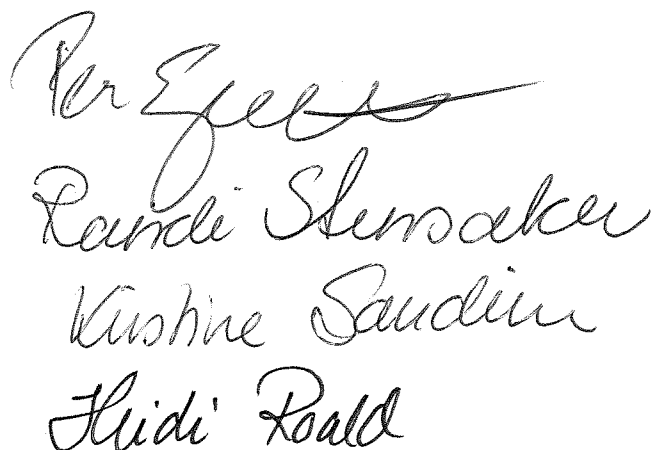 Per
Randi Stensaker
Kristine Sandim
Heidi Roald